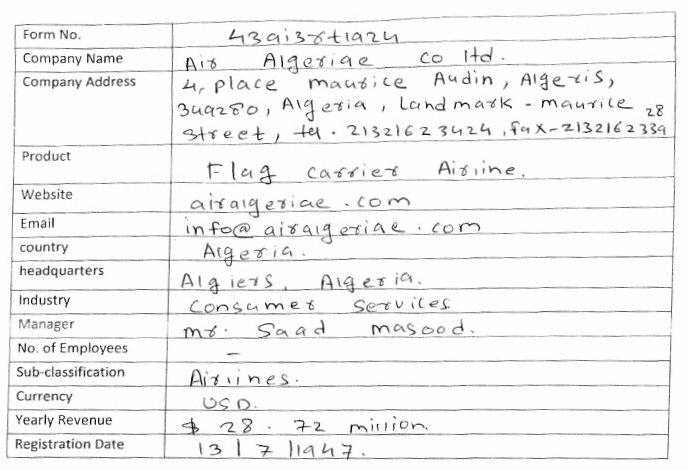 Form No. 43ai38t1924
Company Name Air Algeriae co ltd.
Company Address 4, place maurice Audin, Algeris,
349280, Algeria, Landmark - maurice
street, tel. 21321623424, fax-2132162339
28
Product Flag carrier Airline.
Website airalgeriae.com
Email info@airalgeriae.com
country Algeria.
headquarters Algiers, Algeria.
Industry Consumer Services
Manager mr. Saad masood.
No. of Employees –
Sub-classification Airlines.
Currency USD.
Yearly Revenue $ 28.72 million.
Registration Date 13/7/1947.